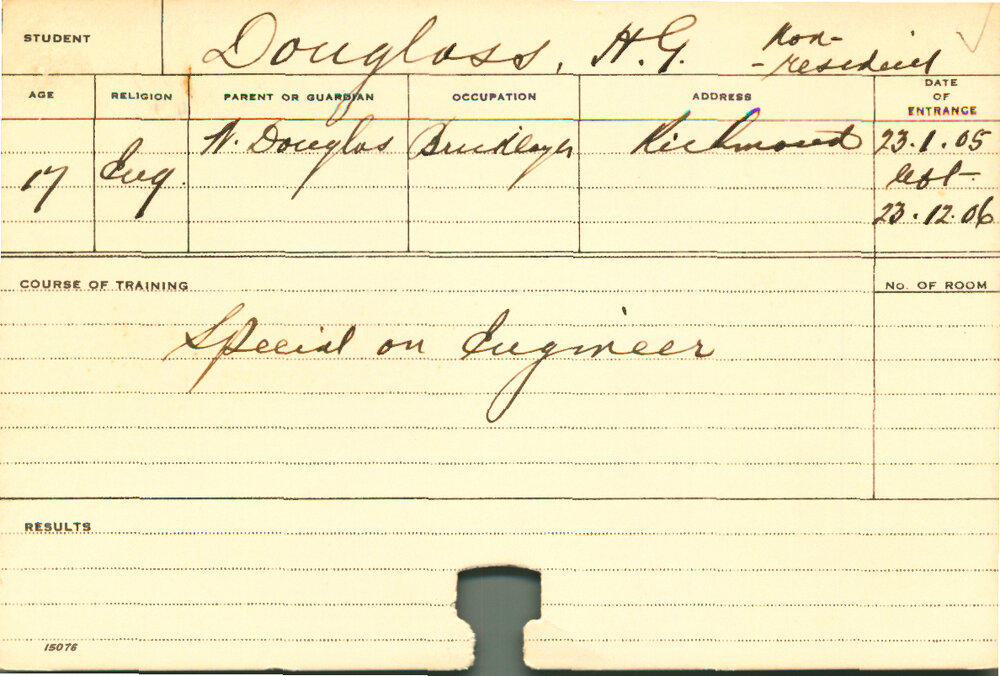 STUDENT Douglass, H.G. Non-
-resident
AGE RELIGION PARENT OR GUARDIAN OCCUPATION ADDRESS DATE OF ENTRANCE
17 Eng. W. Douglas Bricklayer Richmond 23.1.05
left-
23.12.06
COURSE OF TRAINING No. OF ROOM
Special on Engineer
RESULTS
15076